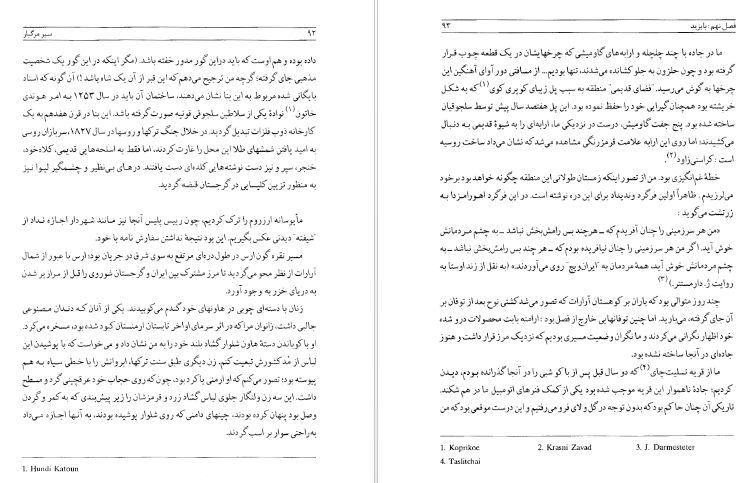 سیر مرگبار
۹۲
داده بوده و هم اوست که باید در این گور مدور خفته باشد. (مگر اینکه در این گور یک شخصیت
مذهبی جای گرفته؛ گرچه من ترجیح می‌دهم که این قبر از آن یک شاه باشد!) آن گونه که اسناد
بایگانی شده مربوط به این بنا نشان می‌دهند، ساختمان آن باید در سال ۱۲۵۳ به امر هوندی
خاتون(۱) نوادهٔ یکی از سلاطین سلجوقی قونیه صورت گرفته باشد. این بنا در قرن هفدهم به یک
کارخانه ذوب فلزات تبدیل گردید. در خلال جنگ ترکها و روسها در سال ۱۸۲۷، سربازان روسی
به امید یافتن شمشهای طلا این محل را غارت کردند، اما فقط به اسلحه‌هایی قدیمی، کلاه‌خود،
خنجر، سپر و نیز دست نوشته‌هایی کله‌ای دست یافتند. درهای بی‌نظیر و چشمگیر لیوا نیز
به منظور تزیین کلیسایی در گرجستان قبضه گردید.
مأیوسانه ارزروم را ترک کردیم، چون رییس پلیس آنجا نیز مانند شهردار اجازه نداد از
"شیفته" دیدنی عکس بگیریم. این بود نتیجهٔ نداشتن سفارش نامه با خود.
مسیر نقره گون ارس در طول دره‌ای مرتفع به سوی شرق در جریان بود؛ ارس با عبور از شمال
آرارات از نظر محو می‌گردید تا مرز مشترک بین ایران و گرجستان شوروی را قبل از سرازیر شدن
به دریای خزر به وجود آورد.
زنان با دسته‌ای چوبی در هاونهای خود گندم می‌کوبیدند. یکی از آنان که دندان مصنوعی
جالبی داشت، زانوان مرا که در اثر سرمای اواخر تابستان ارمنستان کبود شده بود، مسخره می‌کرد.
او با کوباندن دستهٔ هاون شلوار گشاد بلند خود را به من نشان داد و می‌خواست که با پوشیدن این
لباس از مُد کشورش تبعیت کنم. زن دیگری طبق سنت ترکها، ابروانش را با خطی سیاه به هم
پیوسته بود؛ تصور می‌کنم که او ارمنی یا کرد بود، چون که روی حجاب خود عرقچینی گرد و مسطح
داشت. این سه زن ولنگار جلوی لباس گشاد زرد و قرمزشان را زیر پیش‌بندی که به کمر و گردن
وصل بود پنهان کرده بودند، چینهای دامنی که روی شلوار پوشیده بودند، به آنها اجازه می‌داد
به راحتی سوار بر اسب گردند.
1. Hundi Katoun
فصل نهم: بایزید
۹۳
ما در جاده با چند چلچله و ارابه‌های گاومیشی که چرخهایشان در یک قطعه چوب قرار
گرفته بود و چون حلزون به جلو کشانده می‌شدند، تنها بودیم... از مسافتی دور آوای آهنگین این
چرخها به گوش می‌رسید. "فضای قدیمی" منطقه به سبب پل زیبای کوپری کوی(۱) که به شکل
خرپشته بود همچنان گیرایی خود را حفظ نموده بود. این پل هفتصد سال پیش توسط سلجوقیان
ساخته شده بود. پنج جفت گاومیش، درست در نزدیکی ما، ارابه‌ای را به شیوهٔ قدیمی به دنبال
می‌کشیدند؛ اما روی این ارابه علامت قرمز رنگی مشاهده می‌شد که نشان می‌داد ساخت روسیه
است: کراسنی زاود(۲).
خطهٔ غم‌انگیزی بود. من از تصور اینکه زمستان طولانی این منطقه چگونه خواهد بود بر خود
می‌لرزیدم. ظاهراً اولین فرگرد وندیداد برای این دره نوشته است. در این فرگرد اهورامزدا به
زرتشت می‌گوید:
«من هر سرزمینی را چنان آفریدم که ــ هر چند بس رامش‌بخش نباشد ــ به چشم مردمانش
خوش آید. اگر من هر سرزمینی را چنان نیافریده بودم که ــ هر چند بس رامش‌بخش نباشد ــ به
چشم مردمانش خوش آید، همهٔ مردمان به "ایران‌ویج" روی می‌آوردند.» (به نقل از زند اوستا به
روایت ژ. دارمستتر.)(۳)
چند روز متوالی بود که باران بر کوهستان آرارات که تصور می‌شد کشتی نوح بعد از توفان بر
آن جای گرفته، می‌بارید. اما چنین توفانهایی خارج از فصل بود: ارامنه بابت محصولات درو شده
خود اظهار نگرانی می‌کردند و ما نگران وضعیت مسیری بودیم که نزدیک مرز قرار داشت و هنوز
جاده‌ای در آنجا ساخته نشده بود.
ما از قریه تسلیت‌چای(۴) که دو سال قبل پس از باکو شبی را در آنجا گذرانده بودم، دیدن
کردیم؛ جادهٔ ناهموار این قریه موجب شده بود یکی از کمک فنرهای اتومبیل ما در هم شکند.
تاریکی آن چنان حاکم بود که بدون توجه در گل و لای فرو می‌رفتیم و این درست موقعی بود که من
1. Koprikoe 2. Krasni Zavad 3. J. Darmesteter
4. Taslitchai